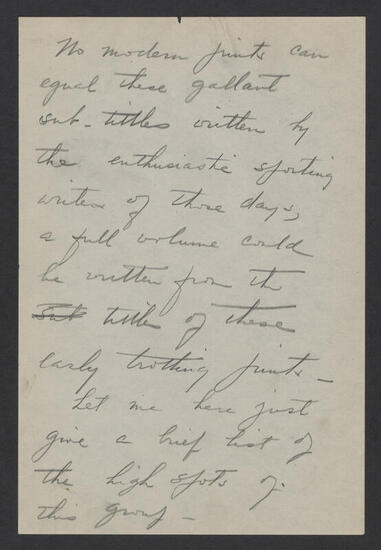 No modern prints can
equal these gallant
sub-titles written by
the enthusiastic sporting
writer of those days,
a full volume could
be written from the
Sub titles of these
early trotting prints –
Let me here just
give a brief list of
the high spots of
this group –